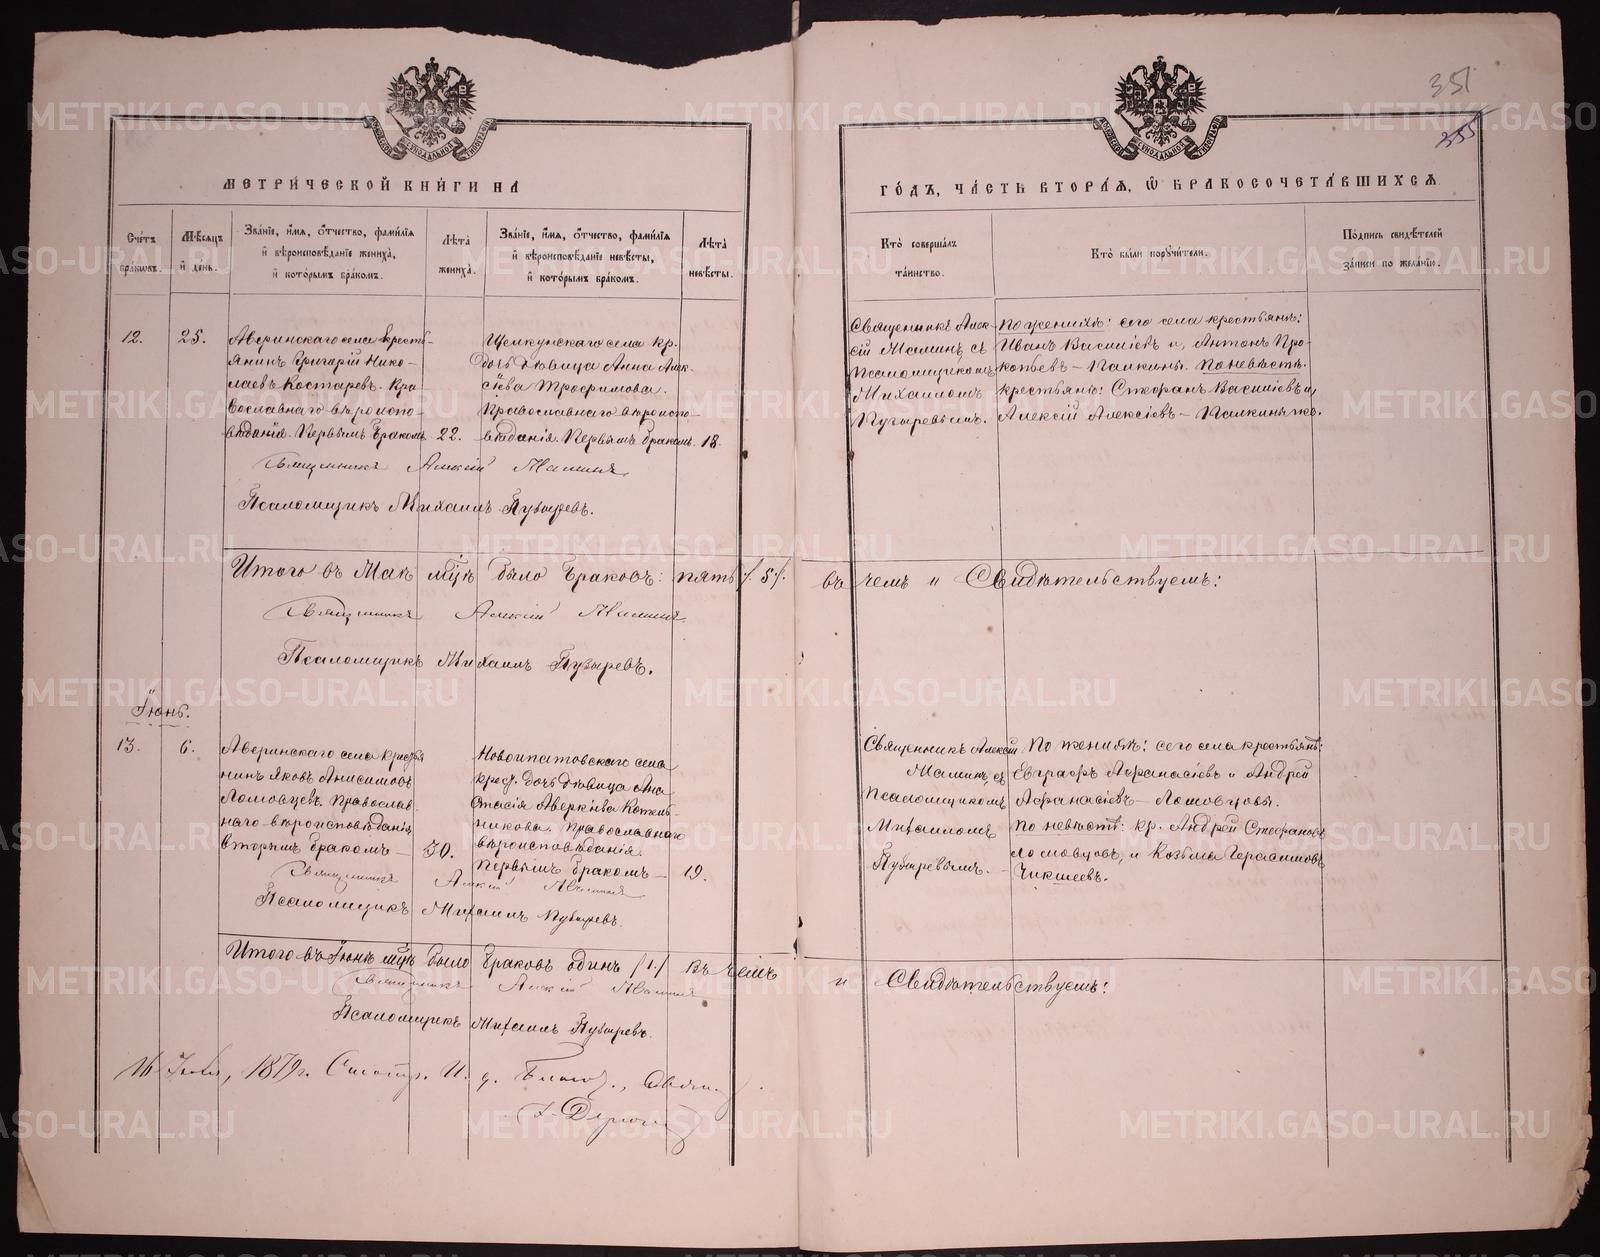 351
355
МЕТРИ́ЧЕСКОЙ КНИ́ГИ НА
ГО́ДЪ, ЧА́СТЬ ВТОРА́Я, Ѡ҆ БРАКОСОЧЕТА́ВШИХСЯ.
Сче́тъ бра́ковъ.
Мѣ́сяцъ и҆ де́нь.
Зва́нїе, и҆́мя, ѻ҆́тчество, фами́лїя
и҆ вѣроисповѣ́данїе жениха̀,
и҆ кото́рымъ бра́комъ.
Лѣ́та жениха̀.
Зва́нїе, и҆́мя, ѻ҆́тчество, фами́лїя
и҆ вѣроисповѣ́данїе невѣ́сты,
и҆ кото́рымъ бра́комъ.
Лѣ́та невѣ́сты.
Кто̀ соверша́лъ
та́инство.
Кто̀ бы́ли поручи́тели.
По́дпись свидѣ́телей
за́писи по жела́нїю.
12.
25.
Аверинскаго села кресть
янинъ Григорій Нико-
лаевъ Костаревъ. Пра
вославнаго вѣроиспо-
вѣданія. Первымъ бракомъ.
22.
Щелкунскаго села кр.
дочь дѣвица Анна Алек-
сіева Трофимова.
Православнаго вѣроиспо-
вѣданія. Первымъ бракомъ.
18.
Священникъ Алек-
сій Малинъ, съ
Псаломщикомъ
Михаиломъ
Пузыревымъ.
По женихѣ: сего села крестьянъ:
Иванъ Василіевъ и, Антонъ Про
копьевъ - Палкины. По невѣстѣ.
крестьяне: Стефанъ Василіевъ и,
Алексій Алексіевъ - Палкины же.
Священникъ Алексій Малинъ
Псаломщикъ Михаилъ Пузыревъ.
Итого въ Маѣ мцѣ было браковъ: пять /.5/. въ чемъ и Свидѣтельствуемъ:
Священникъ Алексій Малинъ
Псаломщикъ Михаилъ Пузыревъ.
Іюнь.
13.
6.
Аверинскаго села крестья
нинъ Яковъ Анисимовъ
Ломовцевъ. Православ-
наго вѣроисповѣданія
вторымъ бракомъ —
30.
Новоипатовскаго села
крест. дочь дѣвица Ана
стасія Аверкіева Котель-
никова. Православнаго
вѣроисповѣданія.
Первымъ бракомъ —
19.
Священникъ Алексій
Малинъ, съ
Псаломщикомъ
Михаиломъ
Пузыревымъ. -
По женихѣ: сего села крестьянъ:
Евграфъ Афанасіевъ и Андрей
Афанасіевъ - Ломовцовы.
По невѣстѣ: кр. Андрей Стефановъ
Ломовцовъ, и Козьма Герасимовъ
Чикшеевъ.
Священникъ Алексій Малинъ
Псаломщикъ Михаилъ Пузыревъ.
Итого въ Іюнѣ мцѣ было браковъ одинъ /1./ въ чемъ и Свидѣтельствуемъ:
Священникъ Алексій Малинъ
Псаломщикъ Михаилъ Пузыревъ.
1879г. И. д.
METRIKI.GASO-URAL.RU